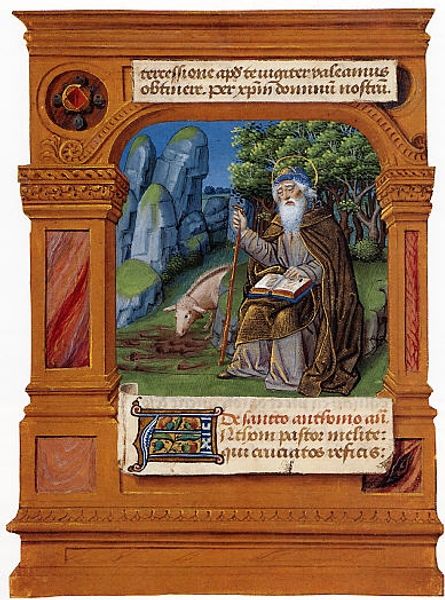 tercessione apd̄ te iugiter valeamus
obtinere. Per xp̄m dominū nostrū.
De sancto anthonio añ.
ANthoni pastor inclite:
qui cruciatos reficis: